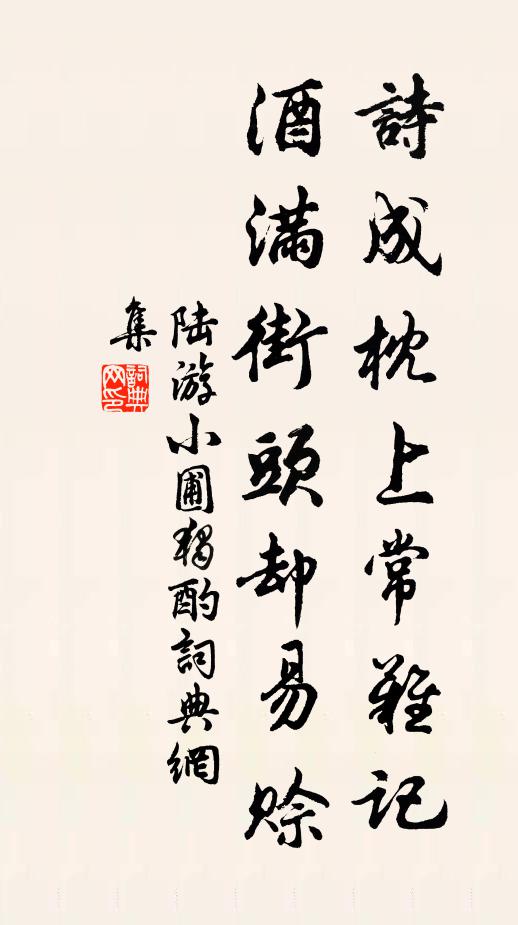 詩成枕上常難記
酒滿街頭却易賒
陆游小圃獨酌詞典網
集
詞典
网印